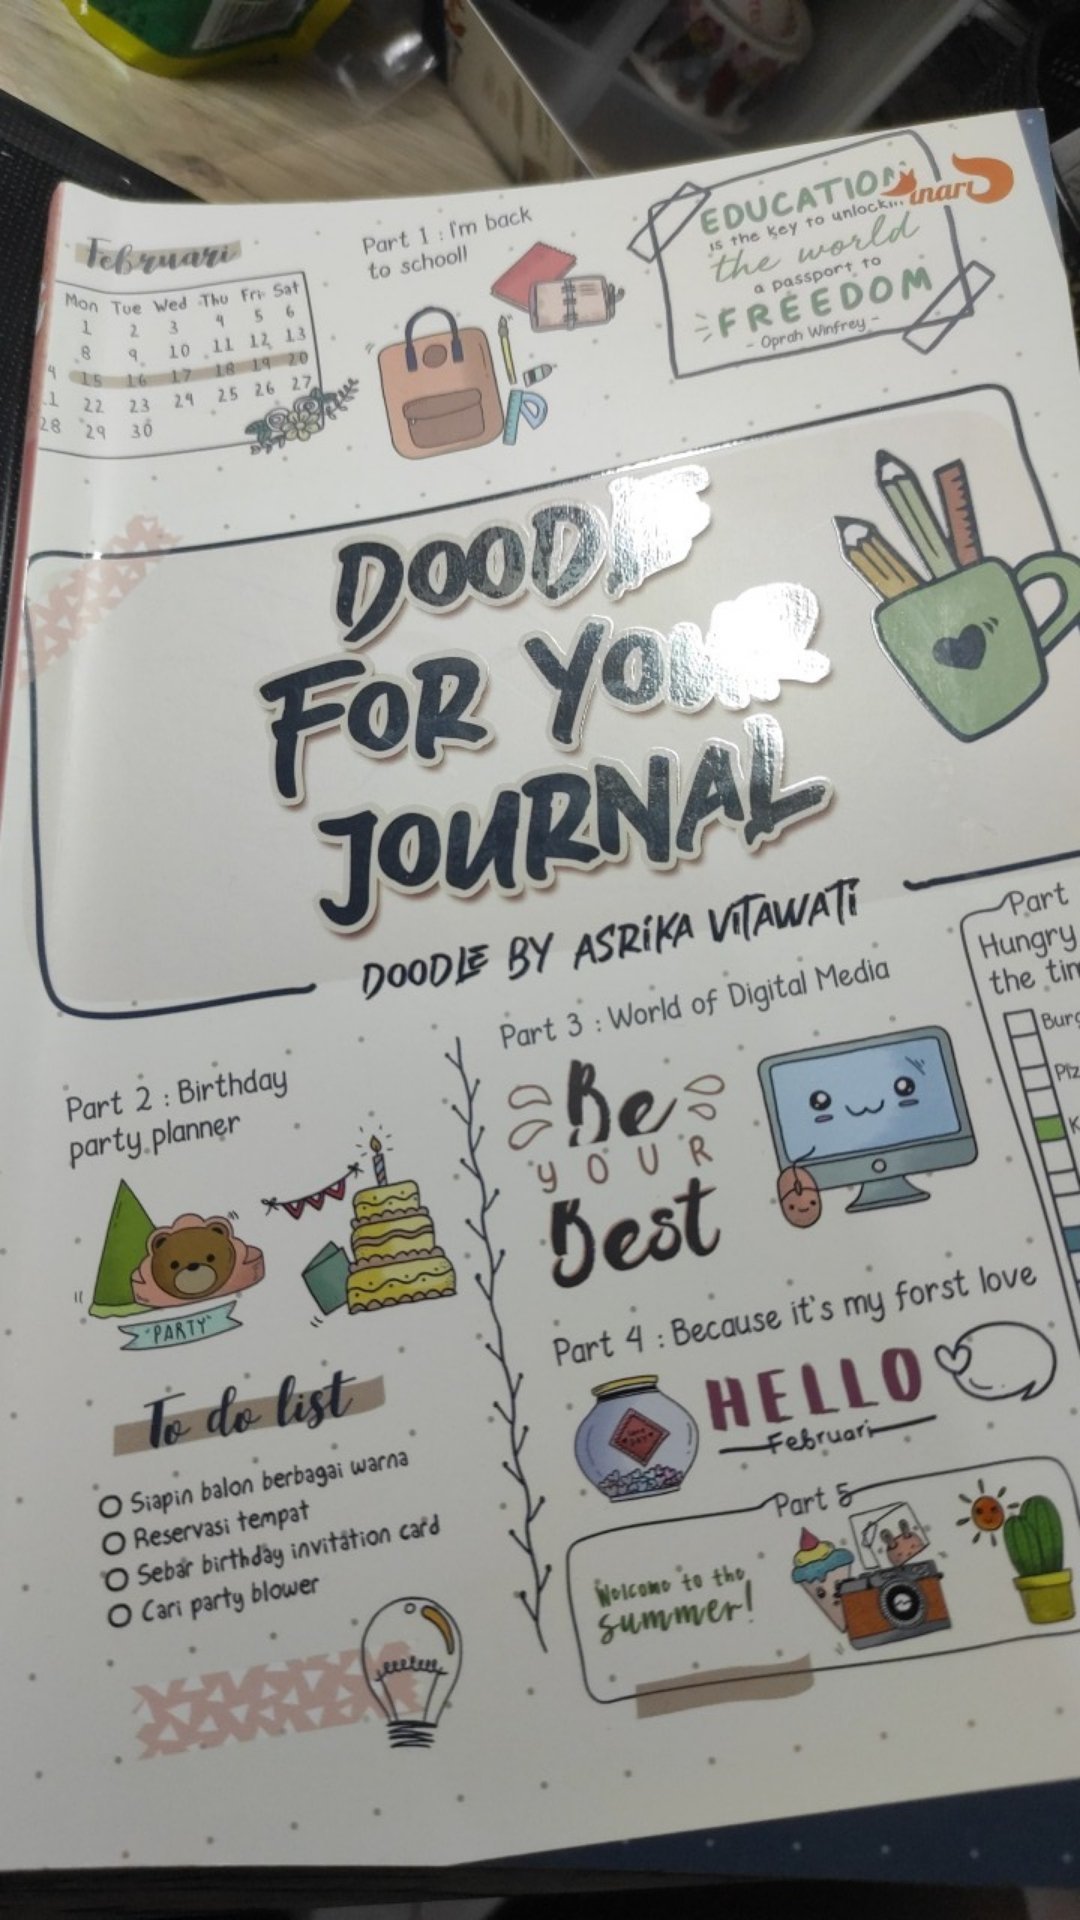 Februari
Mon Tue Wed Thu Fri Sat
1 2 3 4 5 6
8 9 10 11 12 13
15 16 17 18 19 20
22 23 24 25 26 27
28 29 30
Part 1 : I'm back
to school!
EDUCATION
is the key to unlock...
the world
a passport to
FREEDOM
- Oprah Winfrey -
inari
DOODLE
FOR YOUR
JOURNAL
DOODLE BY ASRIKA VITAWATI
Part 2 : Birthday
party planner
"PARTY"
To do list
Siapin balon berbagai warna
Reservasi tempat
Sebar birthday invitation card
Cari party blower
Part 3 : World of Digital Media
Be
YOUR
Best
Part 4 : Because it's my forst love
HELLO
Februari
Part 5
Welcome to the
summer!
Part
Hungry
the